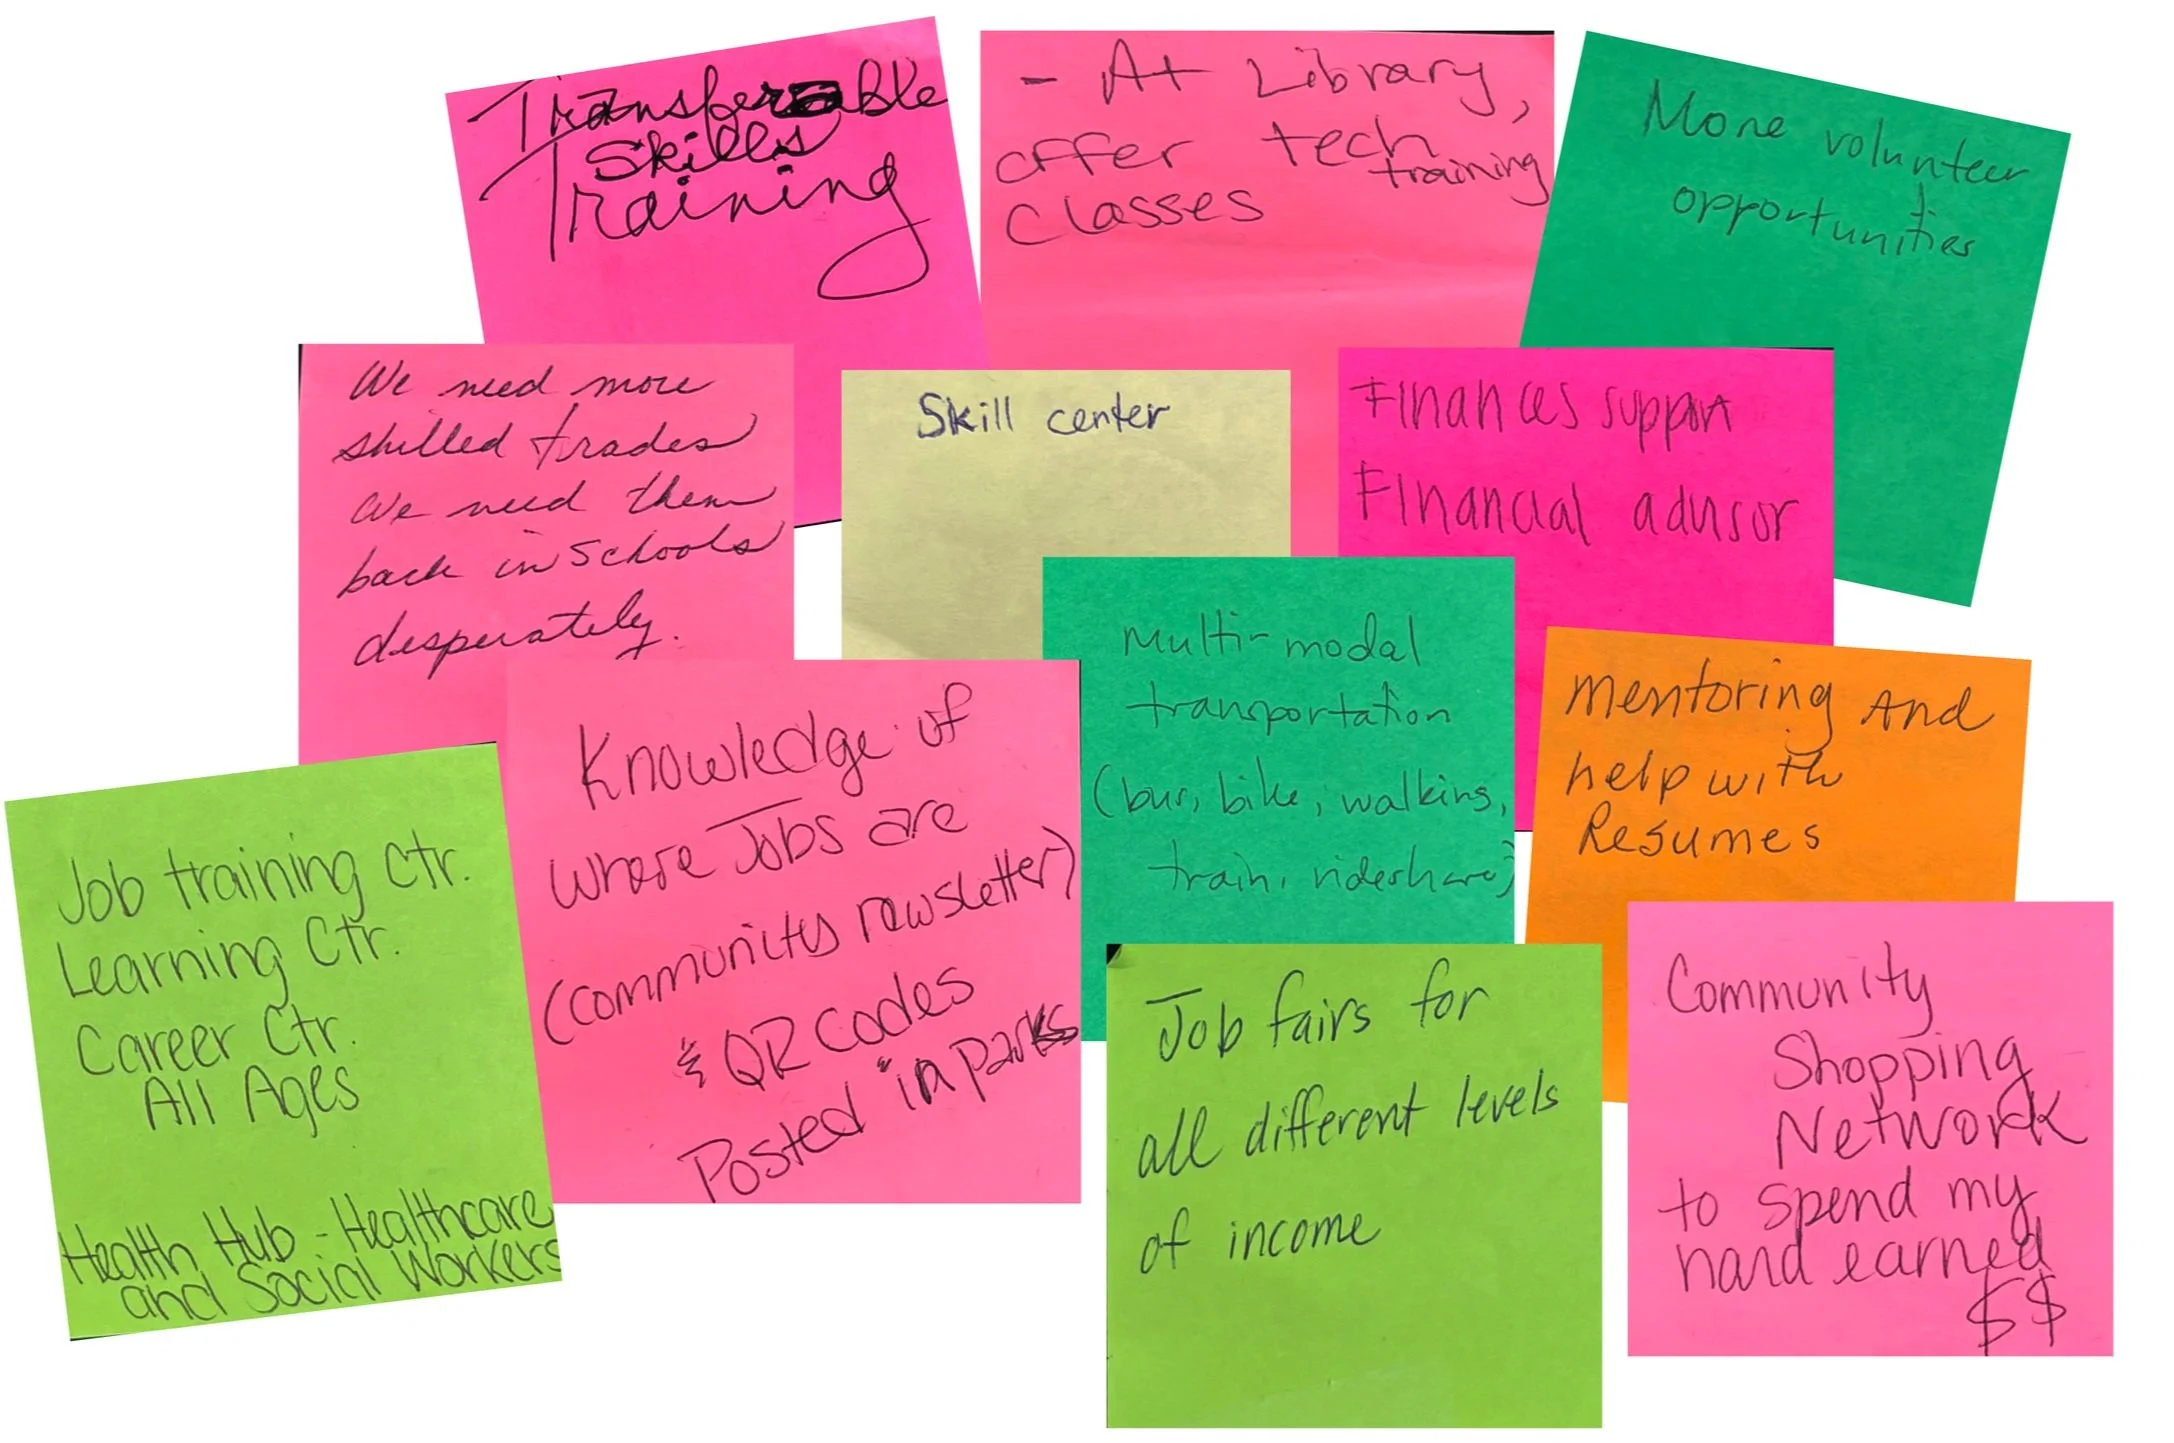 Transferable
Skills
Training
- At Library,
offer tech
training
classes
More volunteer
opportunities
We need more
skilled trades
We need them
back in schools
desperately.
Skill center
Finances support
Financial advisor
Multi-modal
transportation
(bus, bike, walking,
train, rideshare)
Mentoring And
help with
Resumes
Job training Ctr.
Learning Ctr.
Career Ctr.
All Ages
Health Hub - Healthcare
and Social Workers
Knowledge of
where Jobs are
(community newsletter)
& QR codes
Posted in parks
Job fairs for
all different levels
of income
Community
Shopping
Network
to spend my
hard earned
$$